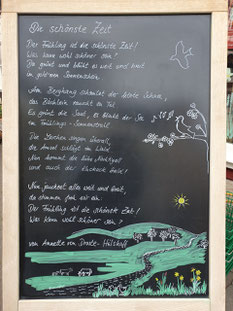 Die schönste Zeit
Der Frühling ist die schönste Zeit!
Was kann wohl schöner sein?
Da grünt und blüht es weit und breit
im goldnen Sonnenschein.
Am Berghang schmilzt der letzte Schnee,
das Bächlein rauscht zu Tal,
Es grünt die Saat, es blinkt der See
im Frühlings-Sonnenstrahl.
Die Lerchen singen überall,
die Amsel schlägt im Wald!
Nun kommt die liebe Nachtigall
und auch der Kuckuck bald.
Nun jauchzet alles weit und breit,
da stimmen froh wir ein:
Der Frühling ist die schönste Zeit!
Was kann wohl schöner sein?
von Annette von Droste-Hülshoff